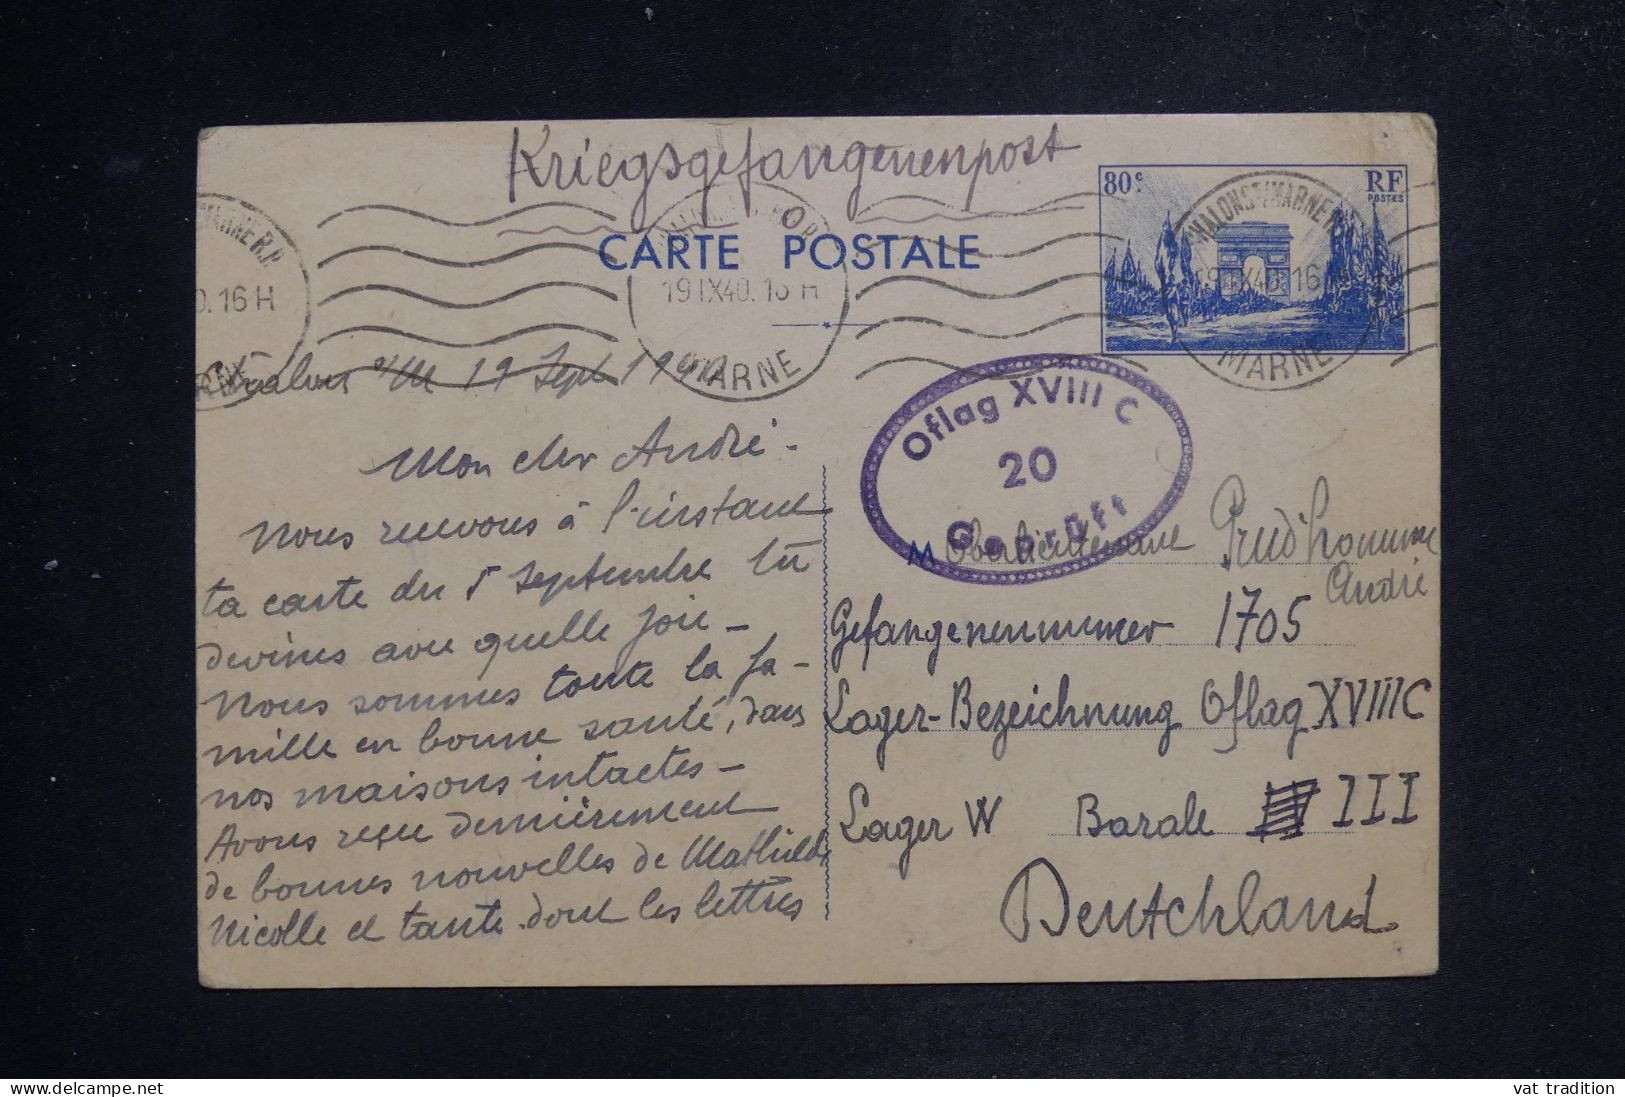 Kriegsgefangenenpost
80c RF
POSTES
CARTE POSTALE
CHALONS S/MARNE R.P.
19 IX 40. 16 H
MARNE
Chalons s/M 19 Sept 1940
Mon cher André -
Nous recevons à l'instant
ta carte du 5 Septembre tu
devines avec quelle joie -
Nous sommes toute la fa-
mille en bonne santé, dans
nos maisons intactes -
Avons reçu dernièrement
de bonnes nouvelles de Mathilde
Nicolle et tante dont les lettres
Oflag XVIII C
20
Geprüft
M Oberlieutenant Prud'homme
André
Gefangenennummer 1705
Lager-Bezeichnung Oflag XVIIIC
Lager W Barake III
Deutchland
vat tradition
www.delcampe.net